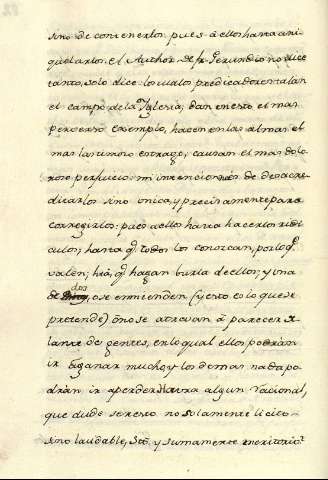 sino de contenerlos: pues à ellos hasta ani
quilarlos. el Author de fr. Gerundio no dice
tanto, solo dice los malos predicadores talan
el campo de la Yglesia; dan en esto el mas
perverso exemplo, hacen en las almas el
mas lastimoso estrago; causan el mas dolo
roso perjuicio: mi intencion es de desacre
dicarlos sino unica, y precisamente para
corregirlos: pues à ellos hasta hacerlos ridi
culos; hasta q todos los conozcan, por lo q
valen; hta, q hagan burla de ellos; y una
de dos, o se enmienden (y esto es lo que se
pretende) ò no se atrevan à parecer de
lante de gentes, en lo qual ellos podràn
ir à ganar mucho, y los demas nada po
dràn ir à perder. Havra algun racional,
que dude ser esto no solamente licito
sino laudable, Sto. y sumamente meritorio?